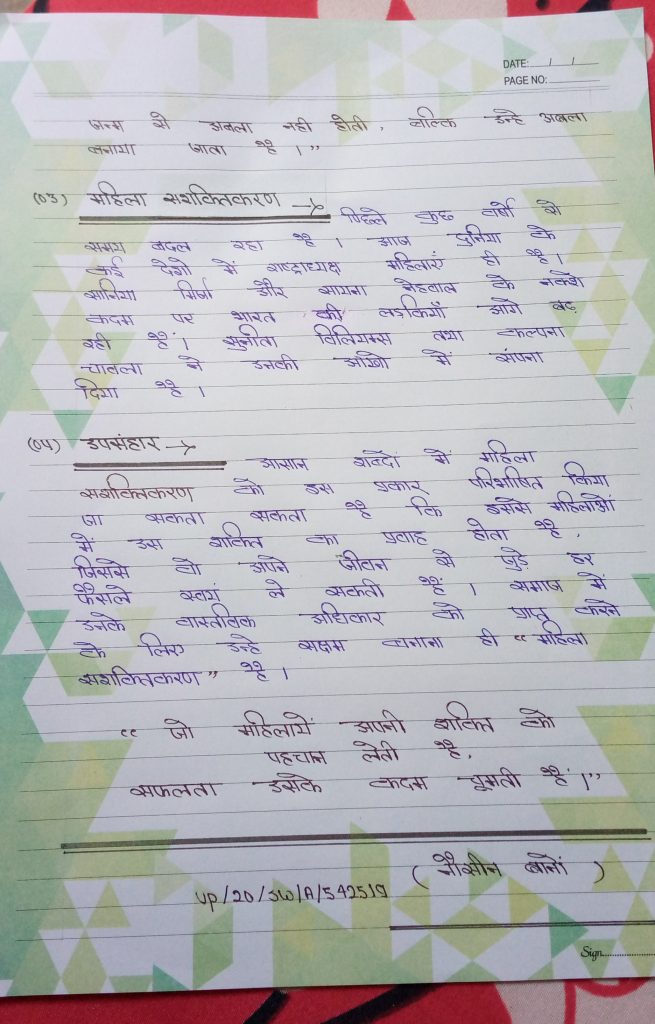 DATE: / /
PAGE NO:
जन्म से अबला नही होती, बल्कि उन्हे अबला
बनाया जाता है।"
(03) महिला सशक्तिकरण → पिछ्ले कुछ वर्षो से
समय बदल रहा है। आज दुनिया के
कई देशो में राष्ट्राध्यक्ष महिलाएं ही है।
सानिया मिर्जा और सायना नेहवाल के नक्शे
कदम पर भारत की लडकियाँ आगे बढ़
रही हैं। सुनीता विलियम्स तथा कल्पना
चावला ने उनकी आंखो में संपना
दिया है।
(04) उपसंहार → आसान शब्दों में महिला
सशक्तिकरण को इस प्रकार परिभाषित किया
जा सकता सकता है कि इससे महिलाओं
में उस शक्ति का प्रवाह होता है,
जिससे वो अपने जीवन से जुडे हर
फैसले स्वयं ले सकती हैं। समाज में
उनके वास्तविक अधिकार को प्राप्त करने
के लिए उन्हे सक्षम बनाना ही "महिला
सशक्तिकरण" है।
"जो महिलायें अपनी शक्ति को
पहचान लेती है,
सफलता उसके कदम चूमती है।"
(नौसीन बानों)
UP/20/SW/A/542519
Sign